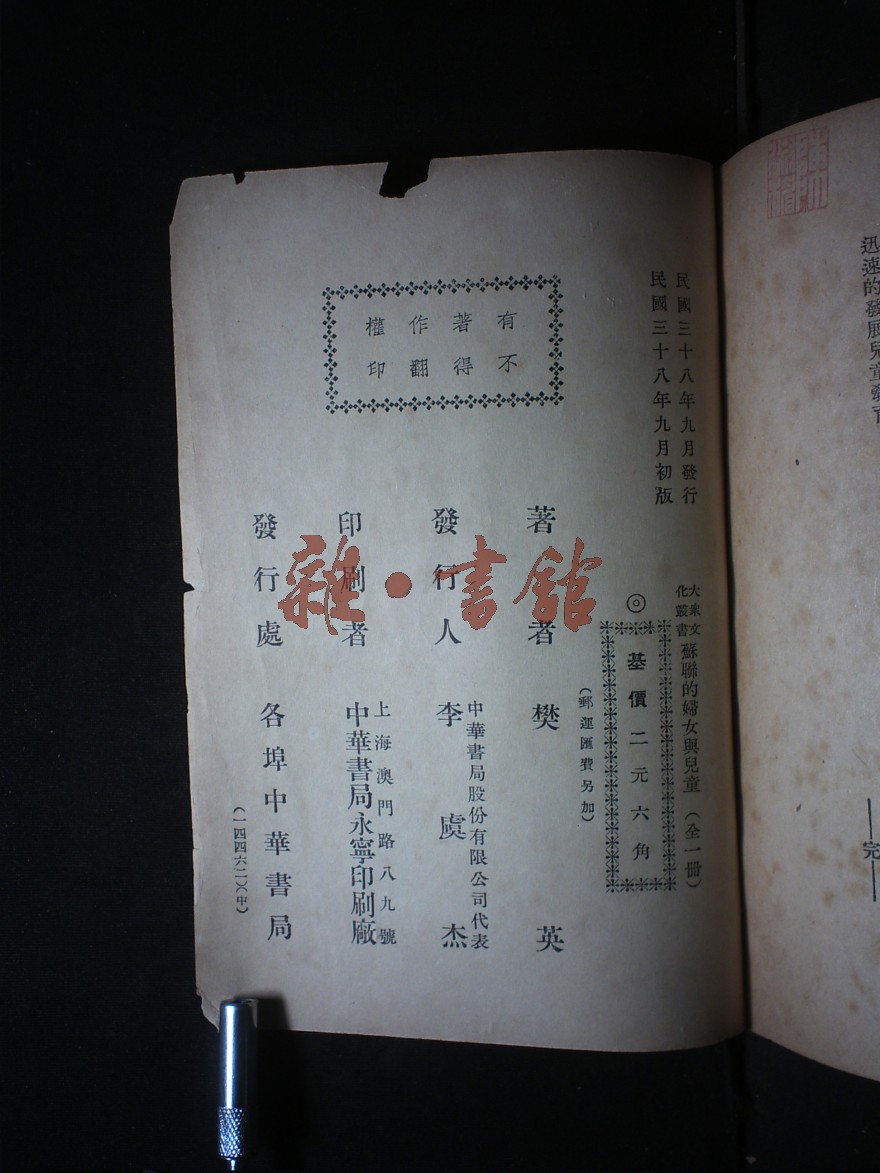 迅速的發展兒童發育
——完——
民國三十八年九月發行
民國三十八年九月初版
大衆文化叢書
蘇聯的婦女與兒童(全一冊)
◎基價二元六角
(郵運匯費另加)
著者 樊英
發行人 李虞杰
中華書局股份有限公司代表
印刷者
上海澳門路八九號
中華書局永寧印刷廠
發行處 各埠中華書局
(一四四六二)(中)
有著作權
不得翻印
雜·書館